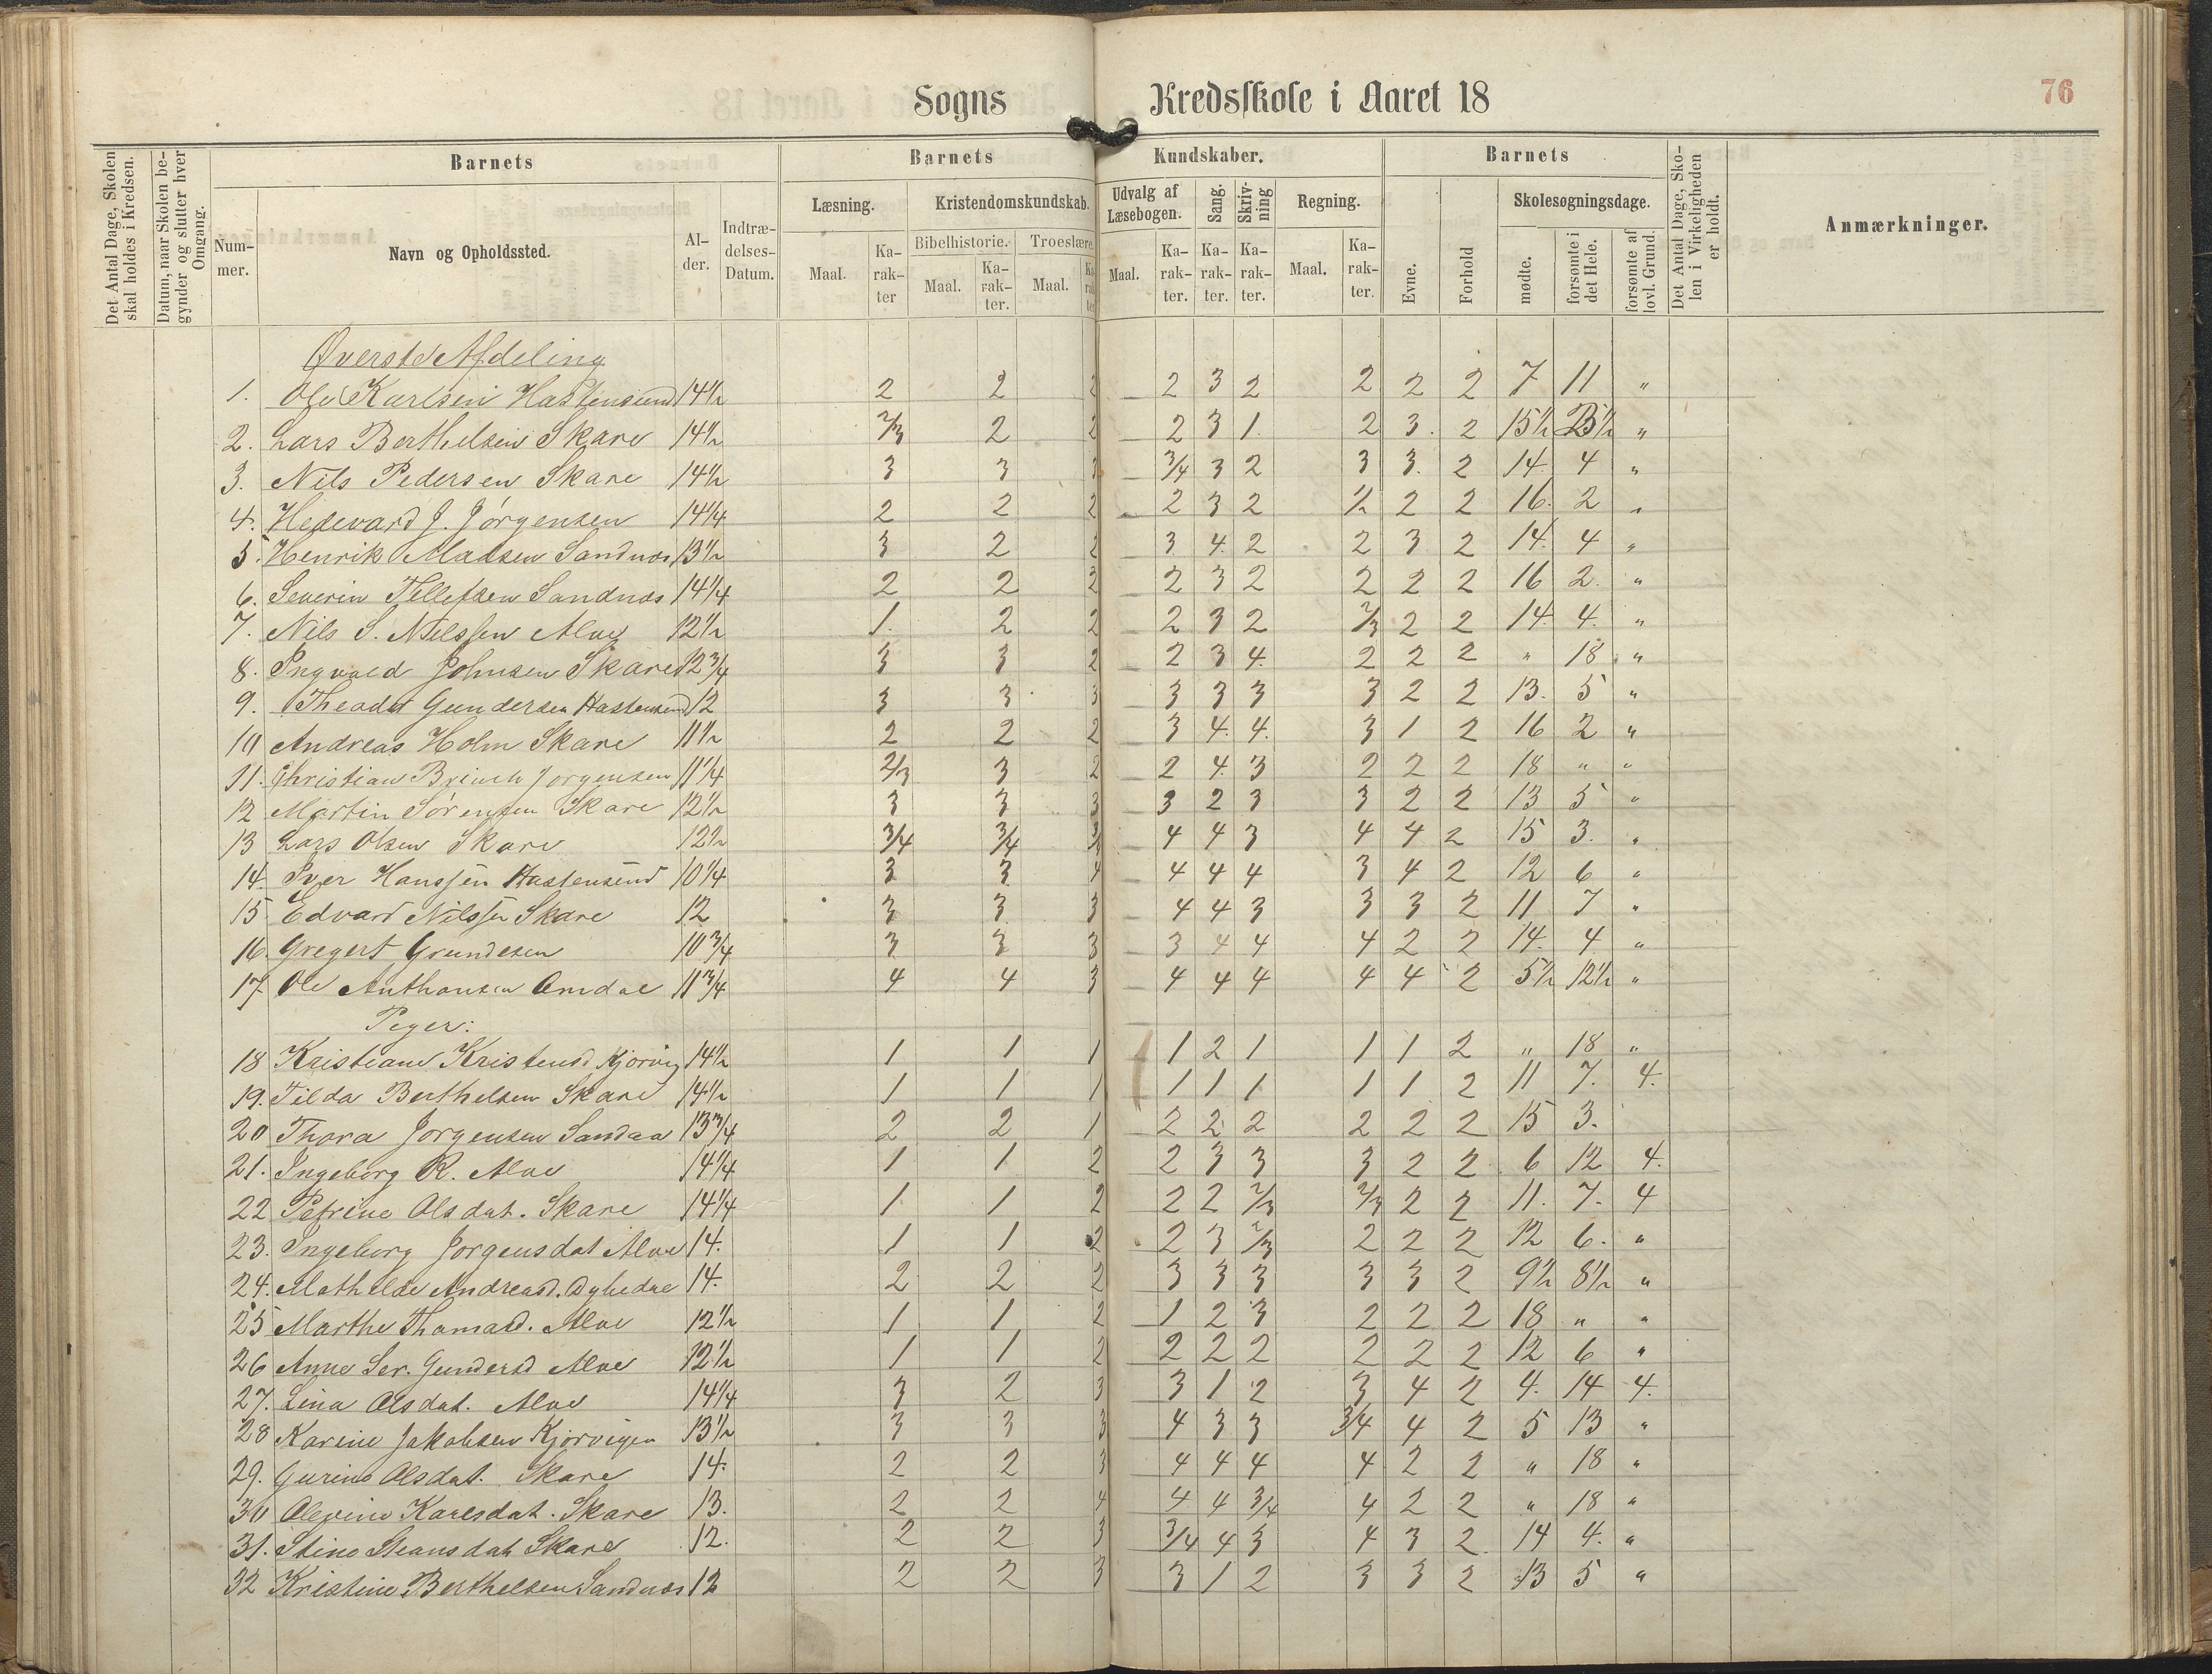 Sogns Kredsskole i Aaret 18
76
Det Antal Dage, Skolen skal holdes i Kredsen.
Datum, naar Skolen begynder og slutter hver Omgang.
Barnets
Nummer.
Navn og Opholdssted.
Alder.
Indtrædelses-Datum.
Barnets Kundskaber.
Læsning.
Maal.
Karakter
Kristendomskundskab.
Bibelhistorie.
Maal.
Karakter.
Troeslære.
Maal.
Karakter
Udvalg af Læsebogen.
Maal.
Karakter.
Sang.
Karakter.
Skrivning
Karakter.
Regning.
Maal.
Karakter.
Barnets
Evne.
Forhold
Skolesøgningsdage.
mødte.
forsømte i det Hele.
forsømte af lovl. Grund.
Det Antal Dage, Skolen i Virkeligheden er holdt.
Anmærkninger.
Øverste Afdeling
1. Ole Karlsen Hastensund 14½ 2 2 2 2 3 2 2 2 2 7 11 "
2. Lars Berthelsen Skare 14½ 2/3 2 2 2 3 1 2 3. 2 15½ "
3. Nils Pedersen Skare 14½ 3 3 3 3/4 3 2 3 3. 2 14. 4 "
4. Hedevard J. Jörgensen 14¼ 2 2 2 2 3 2 ½ 2 2 16. 2 "
5. Henrik Madsen Sandnæs 13½ 3 2 2 3 4. 2 2 3 2 14. 4 "
6. Severin Tellefsen Sandnæs 14¼ 2 2 2 2 3 2 2 2 2 16 2. "
7. Nils S. Nilssen Alve 12½ 1. 2 2 2 3 2 2/3 2 2 14. 4. "
8. Ingvald Johnsen Skare 12¾ 3 3 2 2 3 4. 2 2 2 " 18 "
9. Theador Gundersen Hastensund 12 3 3 3 3 3 3 3 2 2 13. 5 "
10 Andreas Holm Skare 11½ 2 2 2 3 4. 4. 3 1 2 16 2 "
11. Christian Brinch Jorgensen 11¼ 2/3 3 2 2 4. 3 2 2 2 18 " "
12 Martin Sörensen Skare 12½ 3 3 3 3 2 3 3 2 2 13 5 "
13 Lars Olsen Skare 12½ 3/4 3/4 4 4 3 4 4 2 15 3. "
14. Iver Hanssen Hastensund 10¼ 3 3 4 4 4 4 3 4 2 12 6 "
15 Edvard Nilssen Skare 12 3 3 3 4 4 3 3 3 2 11 7 "
16. Gregert Grundesen 10¾ 3 3 3 3 4 4 4 2 2 14. 4 "
17. Ole Anthonsen Omdal 11¾ 4 4 3 4 4 4 4 4 2 5½ 12½ "
Piger:
18 Kristiane Kristensd. Kjørvig 14½ 1 1 1 1 2 1 1 1 2 " 18 "
19. Tilda Berthelsen Skare 14½ 1 1 1 1 1 1 1 1 2 11 7. 4.
20 Thora Jorgensen Sandaa 13¾ 2 2 1 2 2 2 2 2 2 15 3.
21. Ingeborg R. Alve 14¼ 1 1 2 2 3 3 3 2 2 6 12 4.
22 Petrine Olsdat. Skare 14¼ 1 1 2 2 2 2/3 2/3 2 2 11. 7. 4
23. Ingeborg Jorgensdat Alve 14. 1 1 2 2 3 2/3 2 2 2 12 6. "
24. Mathilde Andreasd. Dybedal 14. 2 2 2 3 3 3 3 3 2 9½ 8½ "
25 Marthe Thomasd. Alve 12½ 1 1 2 1 2 3 2 2 2 18 " "
26 Anne Ser. Gundersd Alve 12½ 1 1 2 2 2 2 2 2 2 12 6 "
27. Lina Olsdat. Alve 14¼ 3 2 3 3 1 2 3 4 2 4. 14 4.
28 Karine Jakobsen Kjorvigen 13½ 3 3 3 4 3 3 3/4 4 2 5 13 "
29. Gurine Olsdat. Skare 14. 2 2 3 4 4 4 4 2 2 " 18 "
30 Olevine Karlsdat. Skare 13. 2 2 4 4 4 3/4 4 2 2 " 18 "
31. Stine Steansdat Skare 12. 2 2 3 3/4 4 3 4 3 2 14 4. "
32 Kristine Berthelsen Sandnæs 12 2 2 3 3 1 2 3 3 2 13 5 "